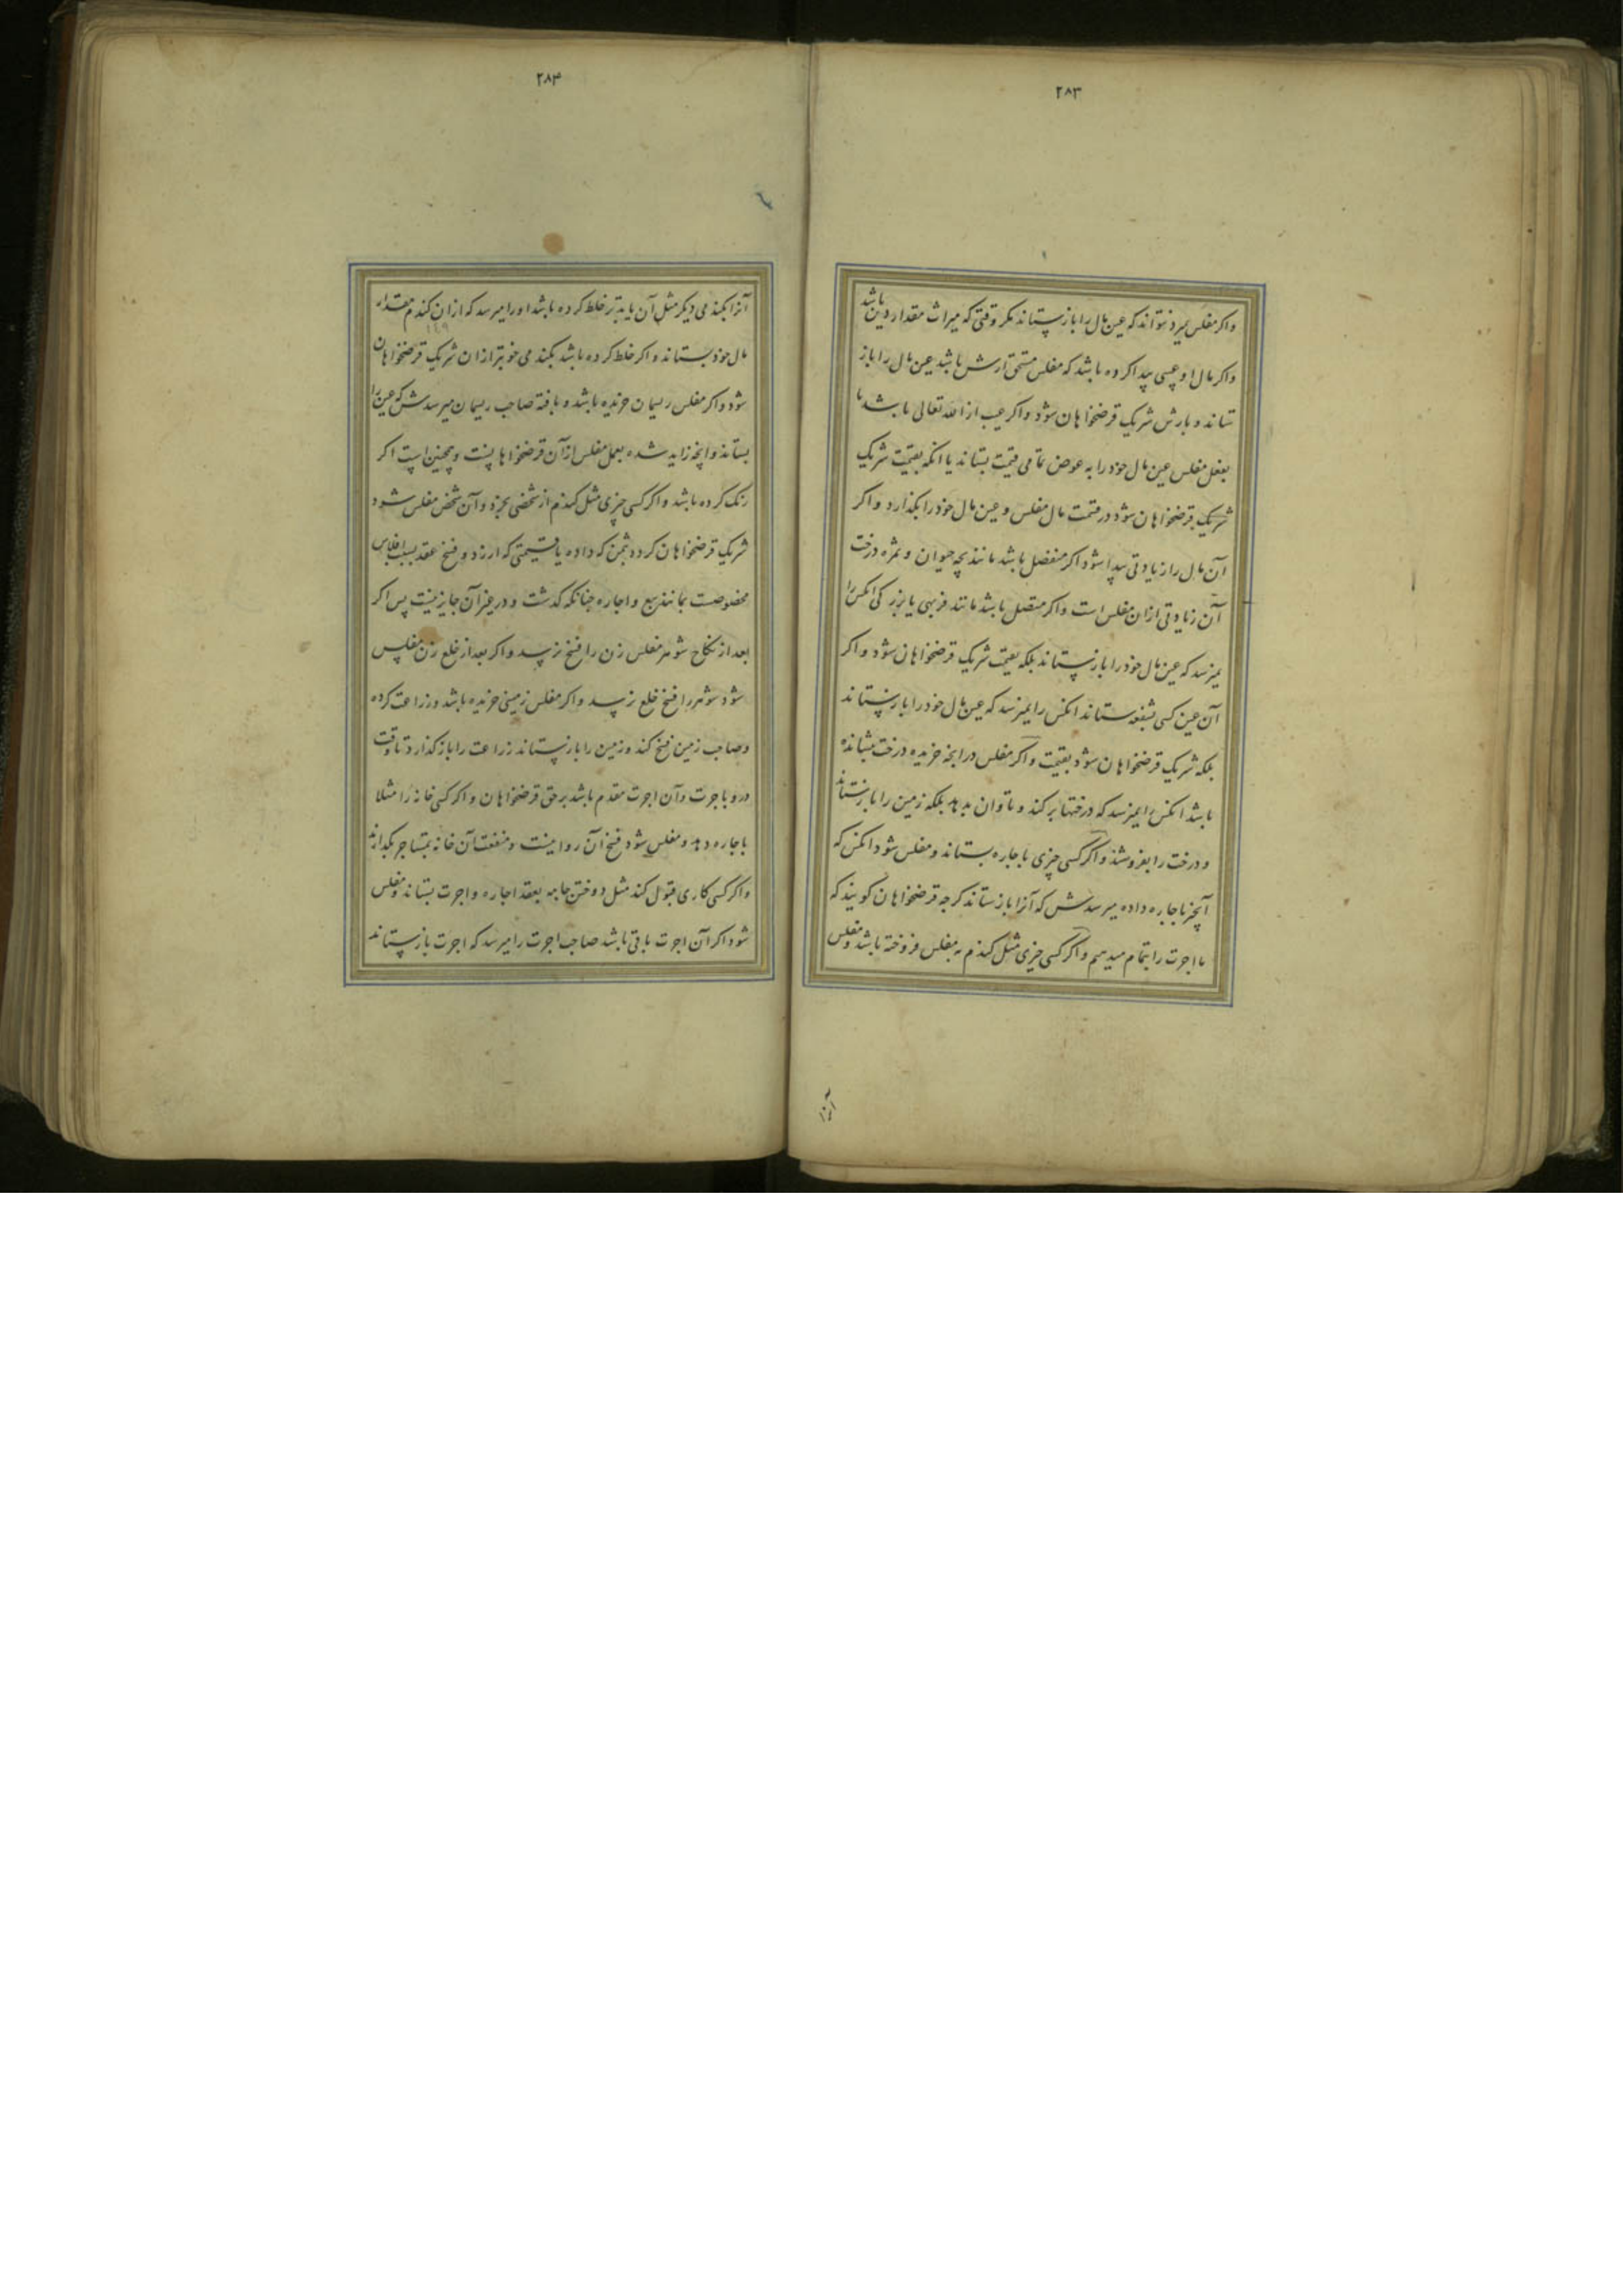 ۲۸۳
واکر مفلس بمیرد نتواند که عین مال را باز ستاند مکر وقتی که میراث مقدار دین باشد
واکر مال او عیبی پیدا کرده باشد که مفلس مستحق ارش باشد عین مال را باز
ستاند و بارش شریک قرضخواهان شود واکر عیب از الله تعالی باشد یا
بفعل مفلس عین مال خود را به عوض تمامی قیمت بستاند یا انکه بقیمت شریک
شریک قرضخواهان شود در قیمت مال مفلس و عین مال خود را بکذارد و اکر
آن مال را زیادتی پیدا شود اکر منفصل باشد مانند بچه حیوان و ثمره درخت
آن زیادتی ازان مفلس است واکر متصل باشد مانند فربهی یا بزرکی انکس را
نمیرسد که عین مال خود را باز ستاند بلکه بقیمت شریک قرضخواهان شود و اکر
آن عین کسی بشفعه ستاند انکس را نمیرسد که عین مال خود را باز ستاند
بلکه شریک قرضخواهان شود بقیمت واکر مفلس در انچه خریده درخت نشانده
باشد انکس را نمیرسد که درختها بر کند و تاوان بدهد بلکه زمین را باز ستاند
و درخت را بفروشند واکر کسی چیزی باجاره بستاند و مفلس شود انکس که
آنچیز باجاره داده میرسدش که آنرا باز ستاند کرچه قرضخواهان کویند که
ما اجرت را بتمام میدهیم واکر کسی چیزی مثل کندم به مفلس فروخته باشد و مفلس
آنرا
۲۸۴
آنرا بکندمی دیکر مثل آن یا بدتر خلط کرده باشد او را میرسد که ازان کندم مقدار
مال خود بستاند و اکر خلط کرده باشد بکندمی خوبتر ازان شریک قرضخواهان
شود واکر مفلس ریسمان خریده باشد و بافته صاحب ریسمان میرسدش که عین را
بستاند وانچه زاید شده بعمل مفلس ازآن قرضخواهانست و همچنین است اکر
رنک کرده باشد واکر کسی چیزی مثل کندم از شخصی بخرد وآن شخص مفلس شود
شریک قرضخواهان کردد بثمن که داده یا قیمتی که ارزد و فسخ عقد بسبب افلاس
مخصوصست بمانند بیع و اجاره چنانکه کذشت و در غیر آن جایز نیست پس اکر
بعد از نکاح شوهر مفلس زن را فسخ نرسد واکر بعد از خلع زن مفلس
شود شوهر را فسخ خلع نرسد واکر مفلس زمینی خریده باشد و زراعت کرده
وصاحب زمین فسخ کند و زمین را باز ستاند زراعت را باز کذارد تا وقت
درو باجرت وآن اجرت مقدم باشد بر حق قرضخواهان و اکر کسی خانه را مثلا
باجاره دهد و مفلس شود فسخ آن روا نیست و منفعت آن خانه بمستاجر بکذارند
واکر کسی کاری قبول کند مثل دوختن جامه بعقد اجاره واجرت بستاند و مفلس
شود اکر آن اجرت باقی باشد صاحب اجرت را میرسد که اجرت باز ستاند